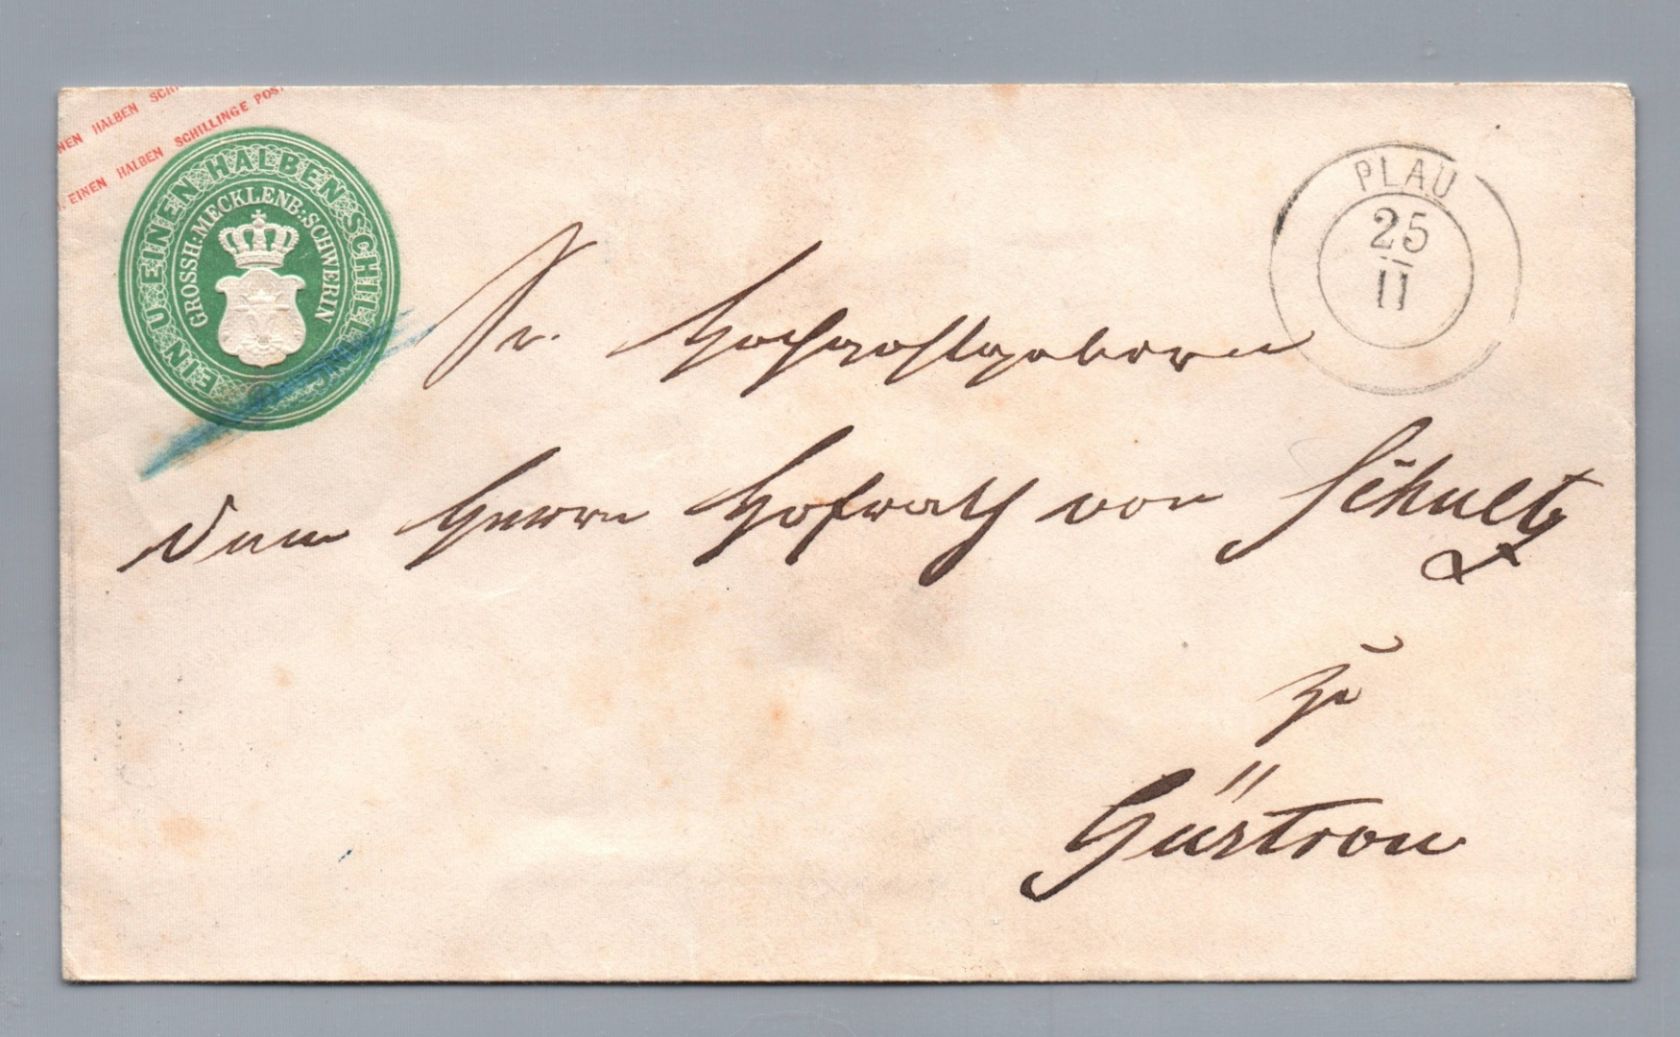 NEN HALBEN SCH
. EINEN HALBEN SCHILLINGE POS
EIN U. EINEN HALBEN SCHILLING
GROSSH: MECKLENB: SCHWERIN
PLAU
25
11
Sr. Hochwohlgeboren
dem Herrn Hofrath von Schultz
zu
Güstrow